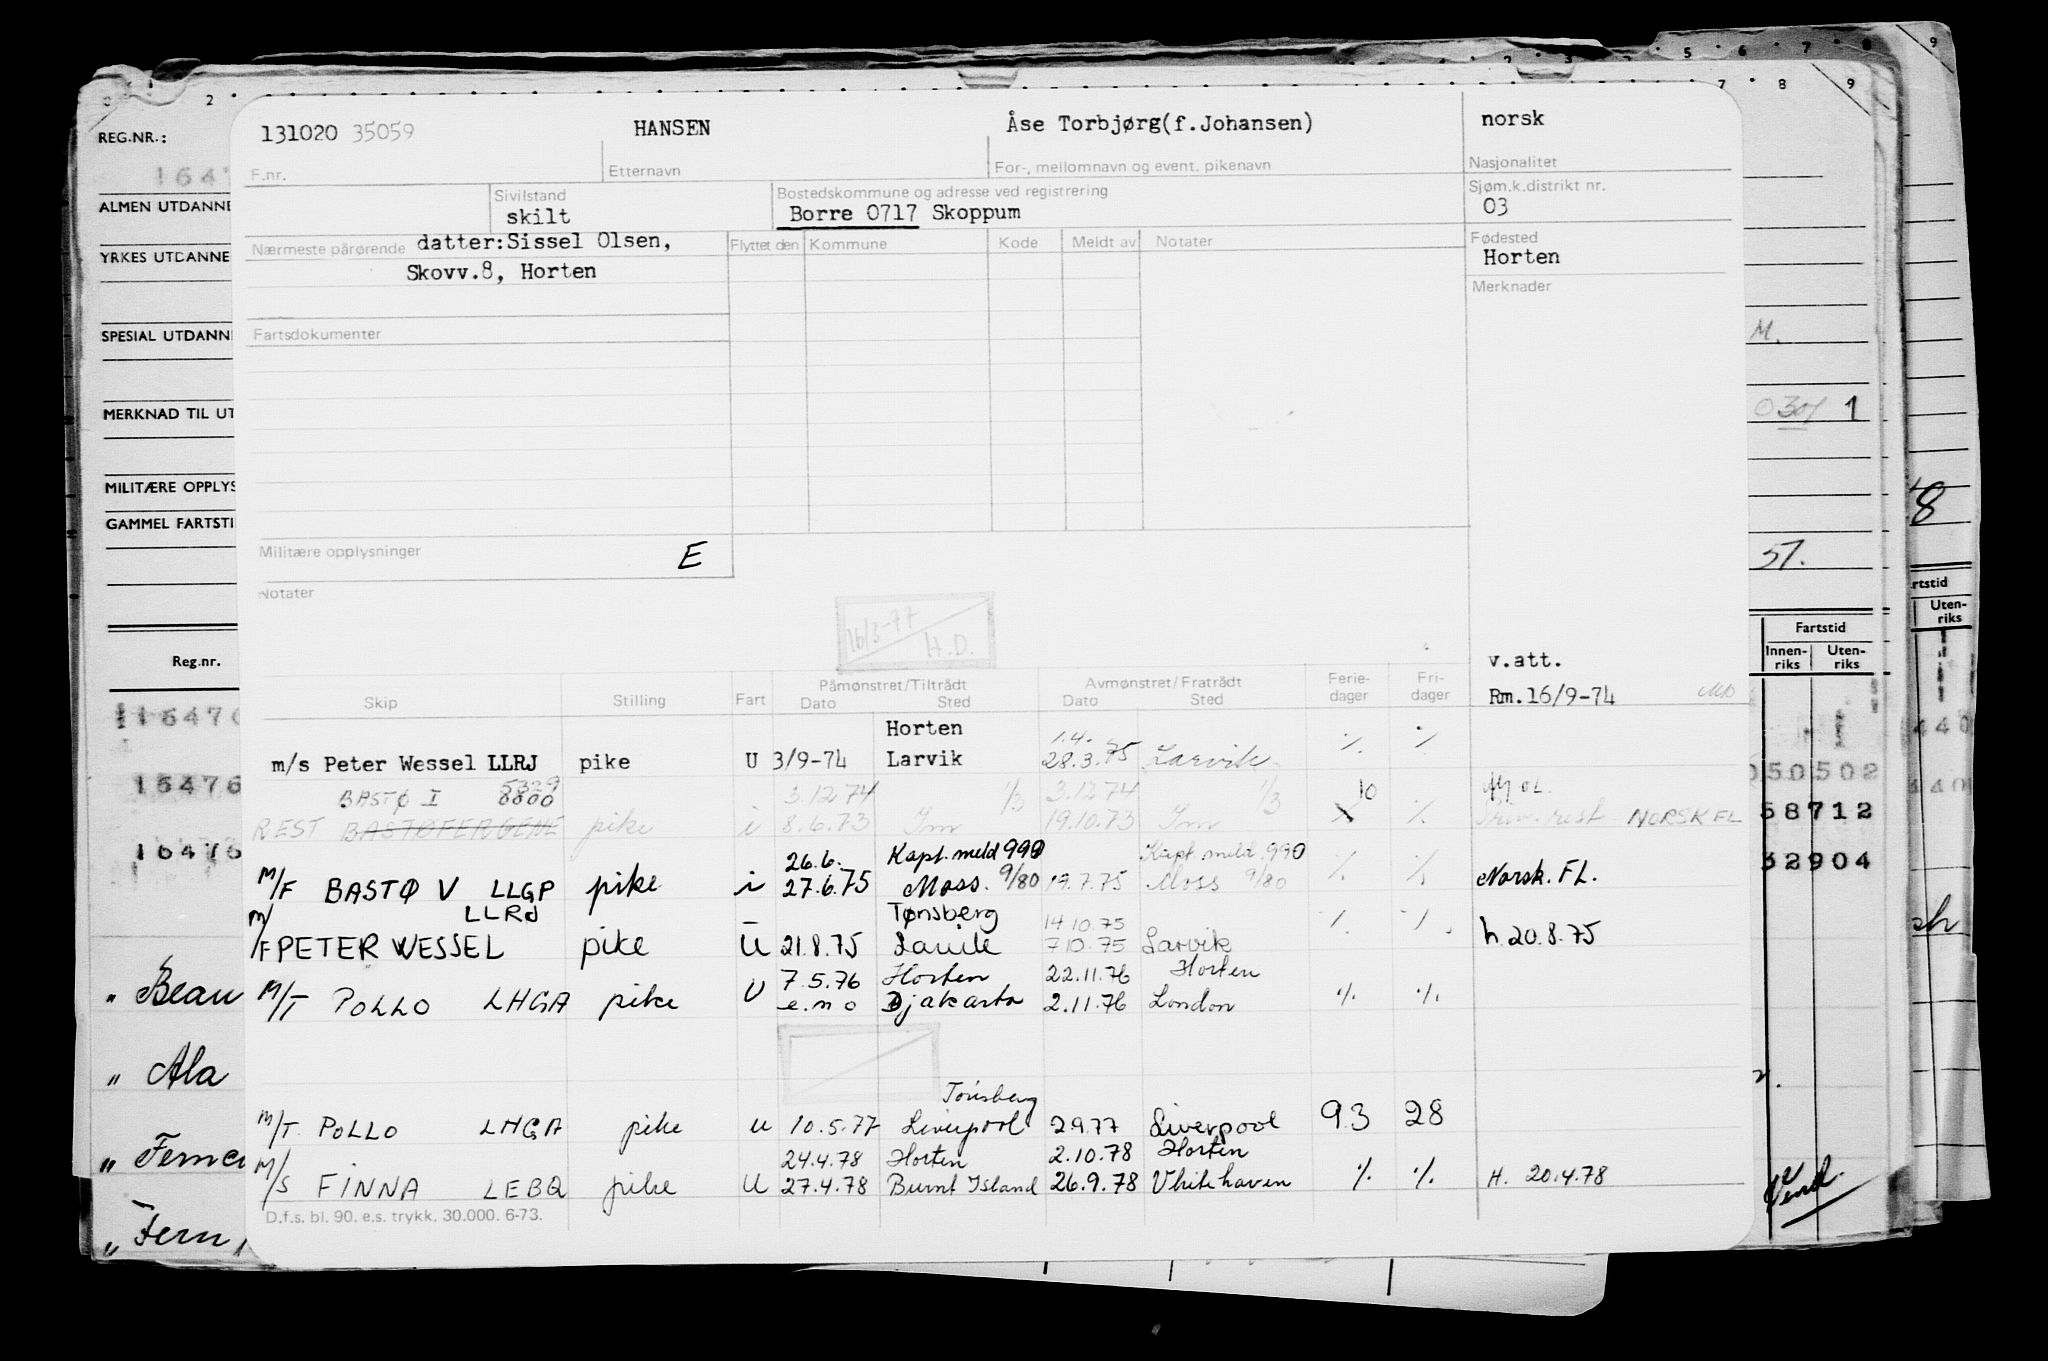 131020 35059 HANSEN Åse Torbjørg(f.Johansen) norsk
F.nr. Etternavn For-, mellomnavn og event. pikenavn Nasjonalitet
Sivilstand Bostedskommune og adresse ved registrering Sjøm.k.distrikt nr.
skilt Borre 0717 Skoppum 03
Nærmeste pårørende datter:Sissel Olsen, Flyttet den Kommune Kode Meldt av Notater Fødested
Skovv.8, Horten Horten
Merknader
Fartsdokumenter
Militære opplysninger E
Notater
16/3-77
H.D.
v.att.
Rm.16/9-74
Skip Stilling Fart Påmønstret/Tiltrådt Dato Sted Avmønstret/Fratrådt Dato Sted Ferie-dager Fri-dager
Horten 1.4.
m/s Peter Wessel LLRJ pike U 3/9-74 Larvik 28.3.75 Larvik % %
5329
BASTØ I 8800 3.12.74 1/3 3.12.74 1/3 10
REST BASTØFERGENE pike i 8.6.73 19.10.73 % NORSK FL
26.6. Kapt. meld 990 Kapt. meld 990
M/F BASTØ V LLGP pike i 27.6.75 Moss. 9/80 19.7.75 Moss 9/80 % % Norsk. FL.
LLRJ Tønsberg 14.10.75
M/F PETER WESSEL pike U 21.8.75 Larvik 7.10.75 Larvik % % h. 20.8.75
7.5.76 Horten 22.11.76 Horten
M/T POLLO LHGA pike U e.m o Djakarta 2.11.76 London % %
Tønsberg
M/T. POLLO LHGA pike u 10.5.77 Liverpool 2.9.77 Liverpool 93 28
24.4.78 Horten 2.10.78 Horten
M/S FINNA LEBQ pike U 27.4.78 Burnt Island 26.9.78 Vhitehaven % % H. 20.4.78
D.f.s. bl. 90. e.s. trykk. 30.000. 6-73.
REG.NR.:
1647
ALMEN UTDANNE
YRKES UTDANNE
SPESIAL UTDANN
MERKNAD TIL UT
MILITÆRE OPPLYS
GAMMEL FARTSTI
Reg.nr.
16470
16476
16476
" Beau
" Ala
" Fernc
" Fern
2 7 8 9
5 6 7 8
9
M.
030/ 1
57.
8
Fartstid
Innen-riks Uten-riks
rtstid
Uten-riks
50502
58712
32904
440
440
Vend.